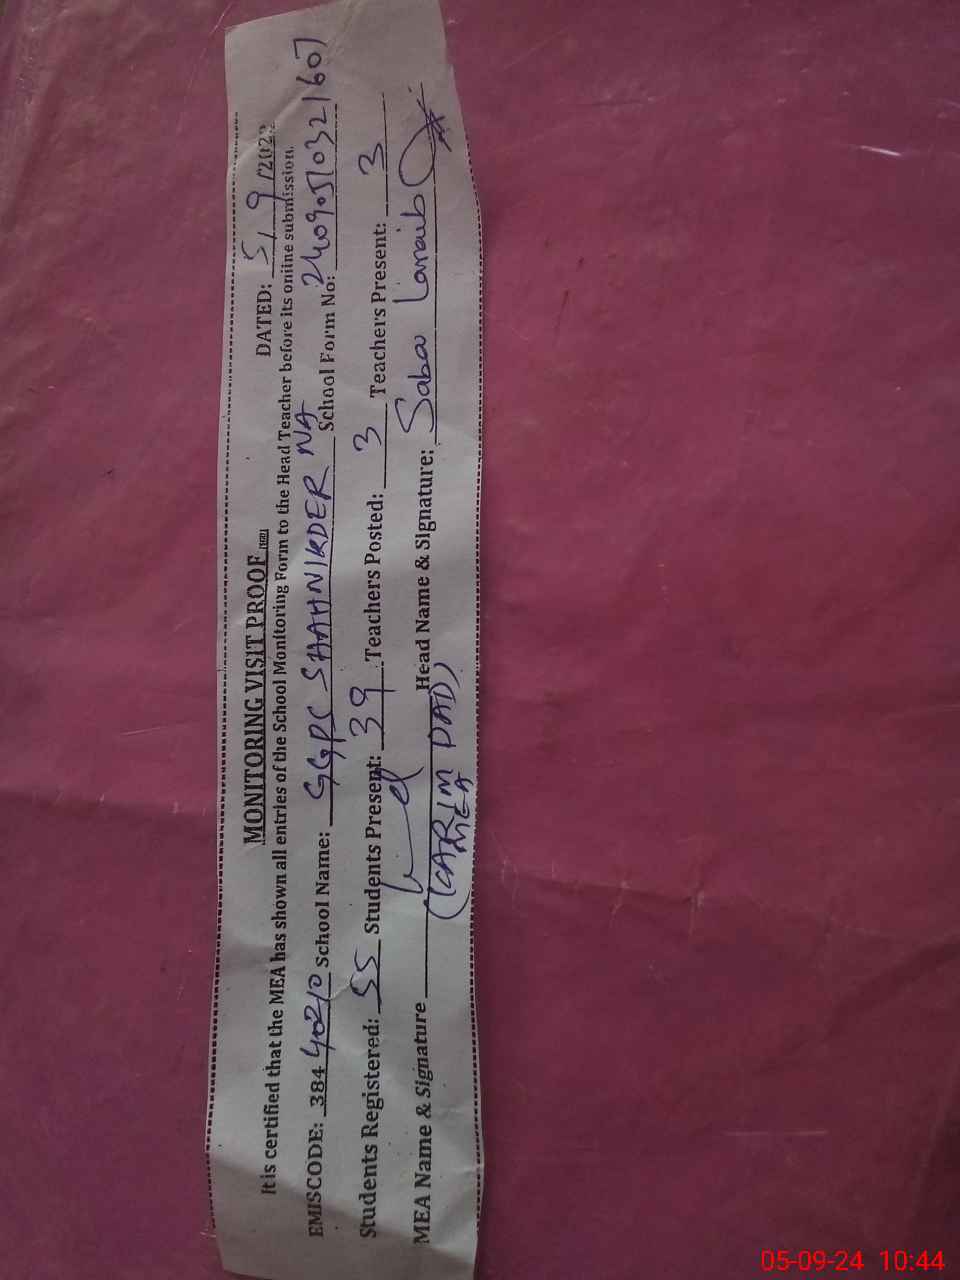 MONITORING VISIT PROOF
DATED: 5/9/2022
It is certified that the MEA has shown all entries of the School Monitoring Form to the Head Teacher before its online submission.
EMISCODE: 38440210 School Name: GGPC SHAHNIKDER NA School Form No:
Students Registered: 55 Students Present: 39 Teachers Posted: 3 Teachers Present: 3
MEA Name & Signature (KARIM DAD) MEA Head Name & Signature: Saba Laraib
05-09-24 10:44